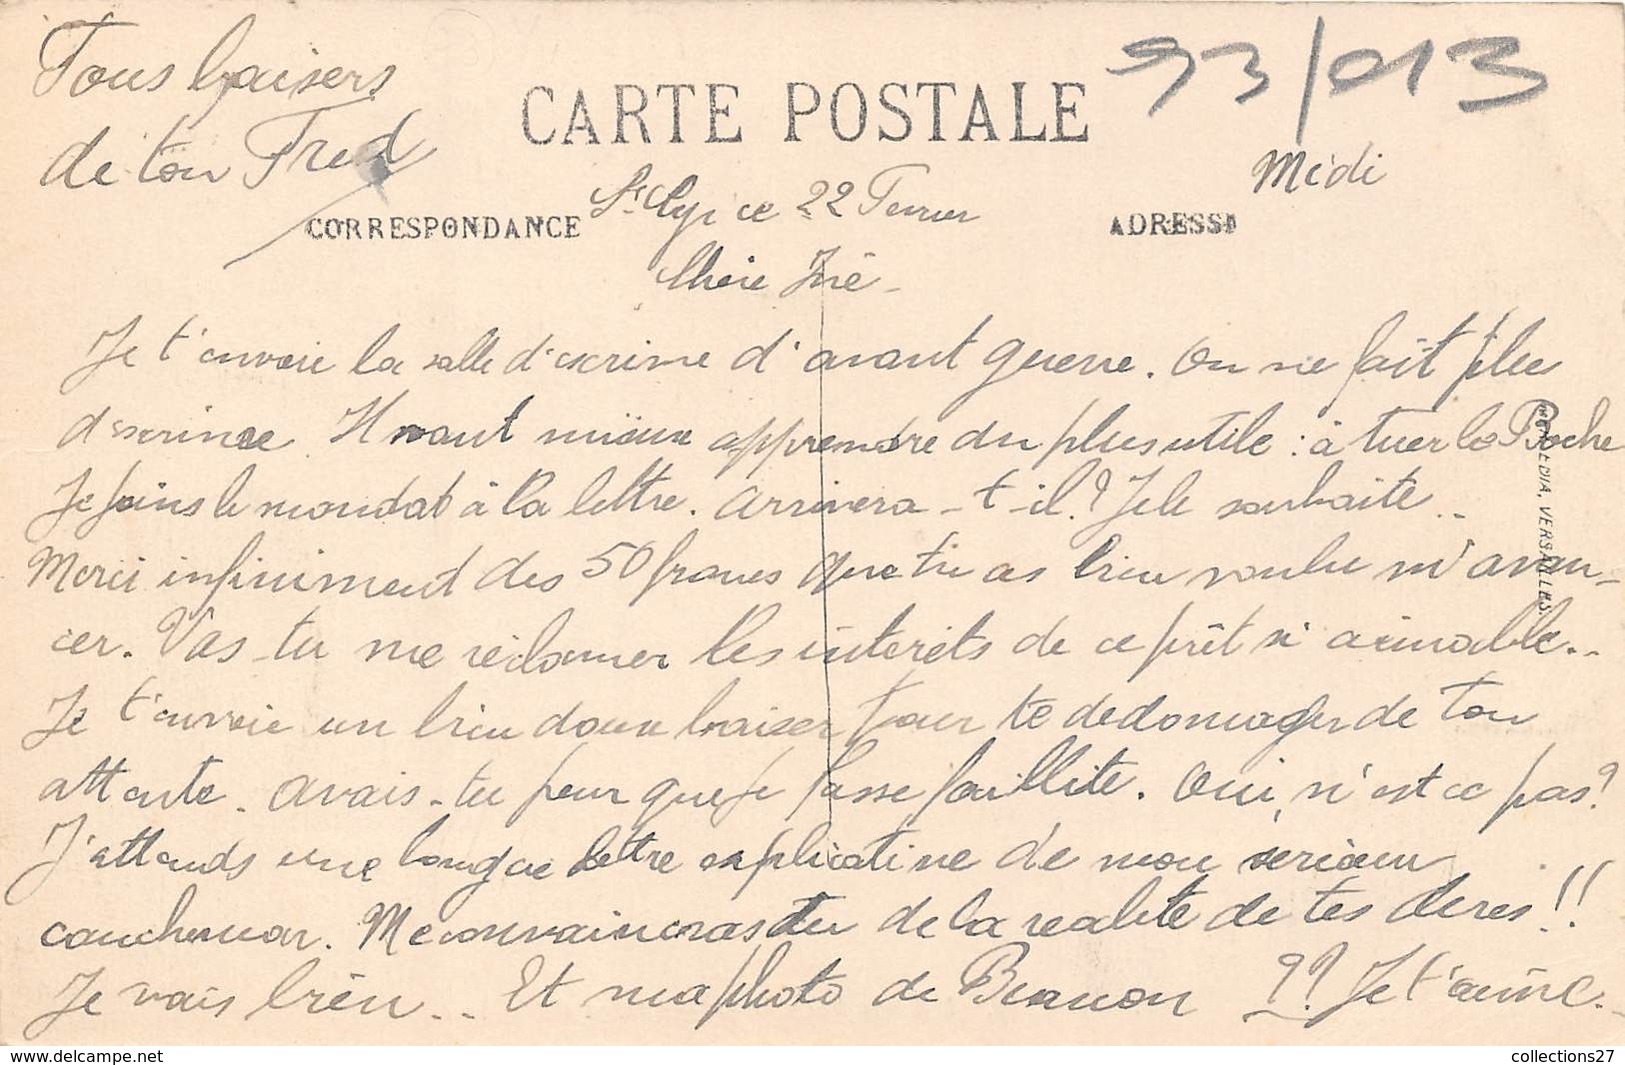 Tous baisers
de ton Fred
CARTE POSTALE
93/013
Midi
St Cyr ce 22 Fevrier
CORRESPONDANCE
ADRESSE
Chère
Je t'envoie la salle d'escrime d'avant guerre. On ne fait plus
d'escrime. Il vaut mieux apprendre du plus utile : à tuer le Boche
Je joins le mandat à la lettre. Arrivera-t-il? Je le souhaite..
Merci infiniment des 50 francs que tu as bien voulu m'avan-
cer. Vas-tu me réclamer les intérêts de ce prêt si aimable..
Je t'envoie un bien doux baiser pour te dedomager de ton
attente. Avais-tu peur que je fasse faillite. Oui, n'est ce pas?
J'attends une longue lettre explicative de mon serieux
cauchemar. Me convaincras tu de la realité de tes dires!!
Je vais bien.. Et ma photo de ?? Je t'aime.
EDIA, VERSAILLES.
collections27